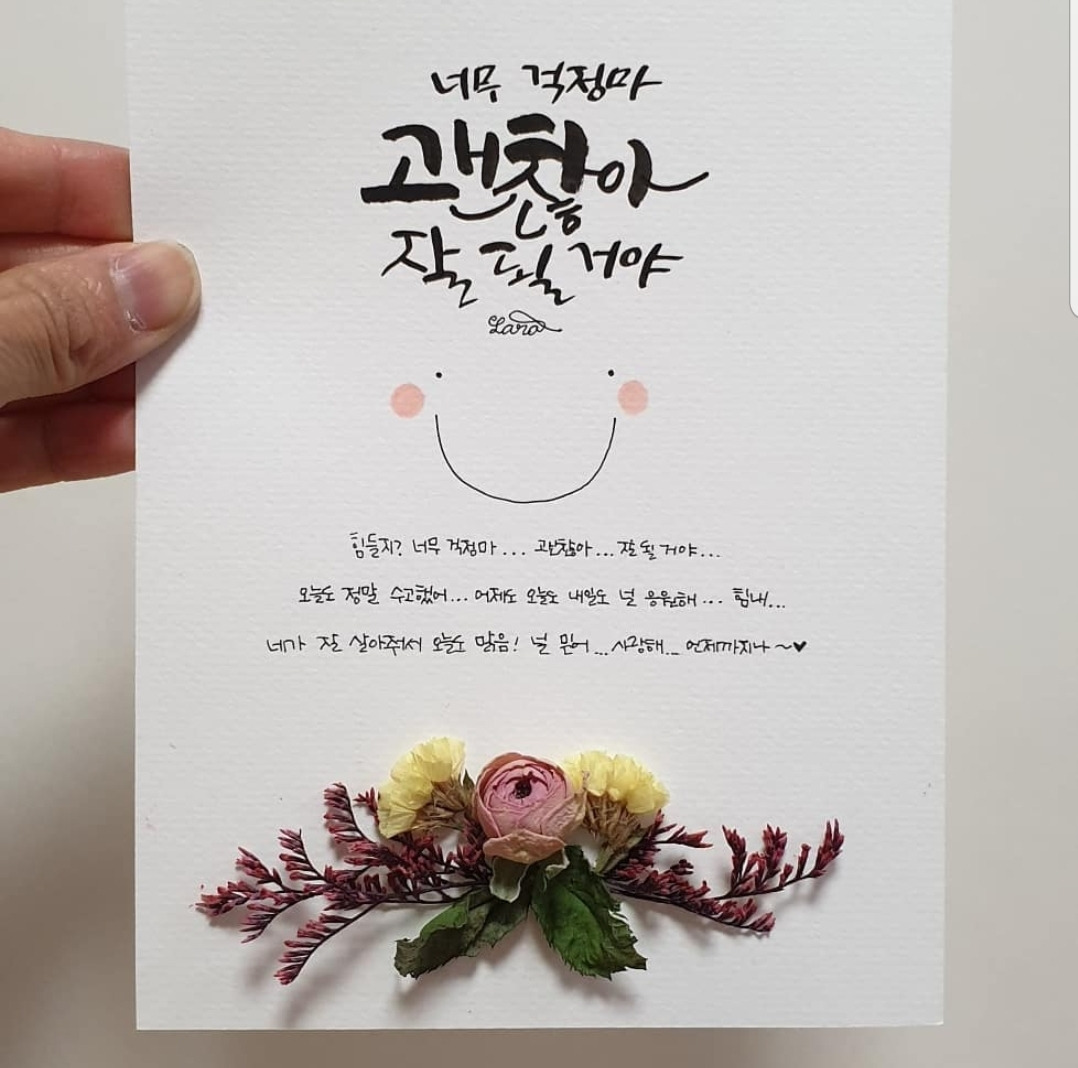 너무 걱정마
괜찮아
잘 될 거야
Lara
힘들지? 너무 걱정마... 괜찮아... 잘 될 거야...
오늘도 정말 수고했어... 어제도 오늘도 내일도 널 응원해... 힘내...
네가 잘 살아줘서 오늘도 맑음! 널 믿어... 사랑해... 언제까지나~♥